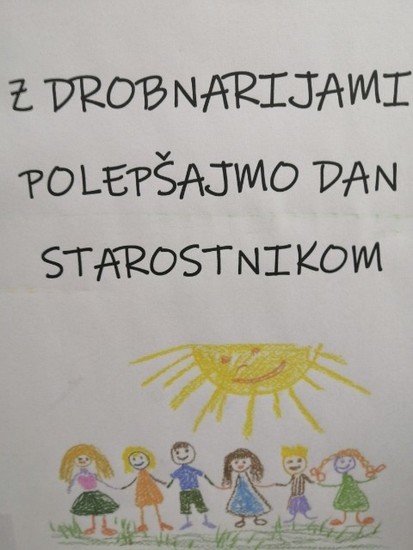 Z DROBNARIJAMI
POLEPŠAJMO DAN
STAROSTNIKOM